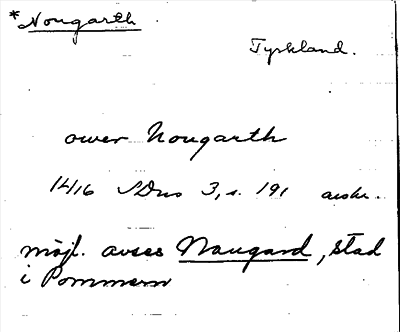 *Nougarth.
Tyskland.
ower Nougarth
1416 SDns 3, s. 191 avskr.
möjl. avses Naugard, stad
i Pommern